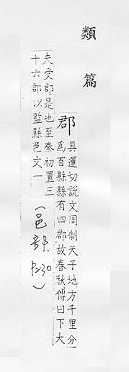 類篇
郡
具運切說文周制天子地方千里分
爲百縣縣有四郡故春秋傳曰下大
夫受郡是也至秦初置三
十六郡以監縣邑文一
(邑部 P230)